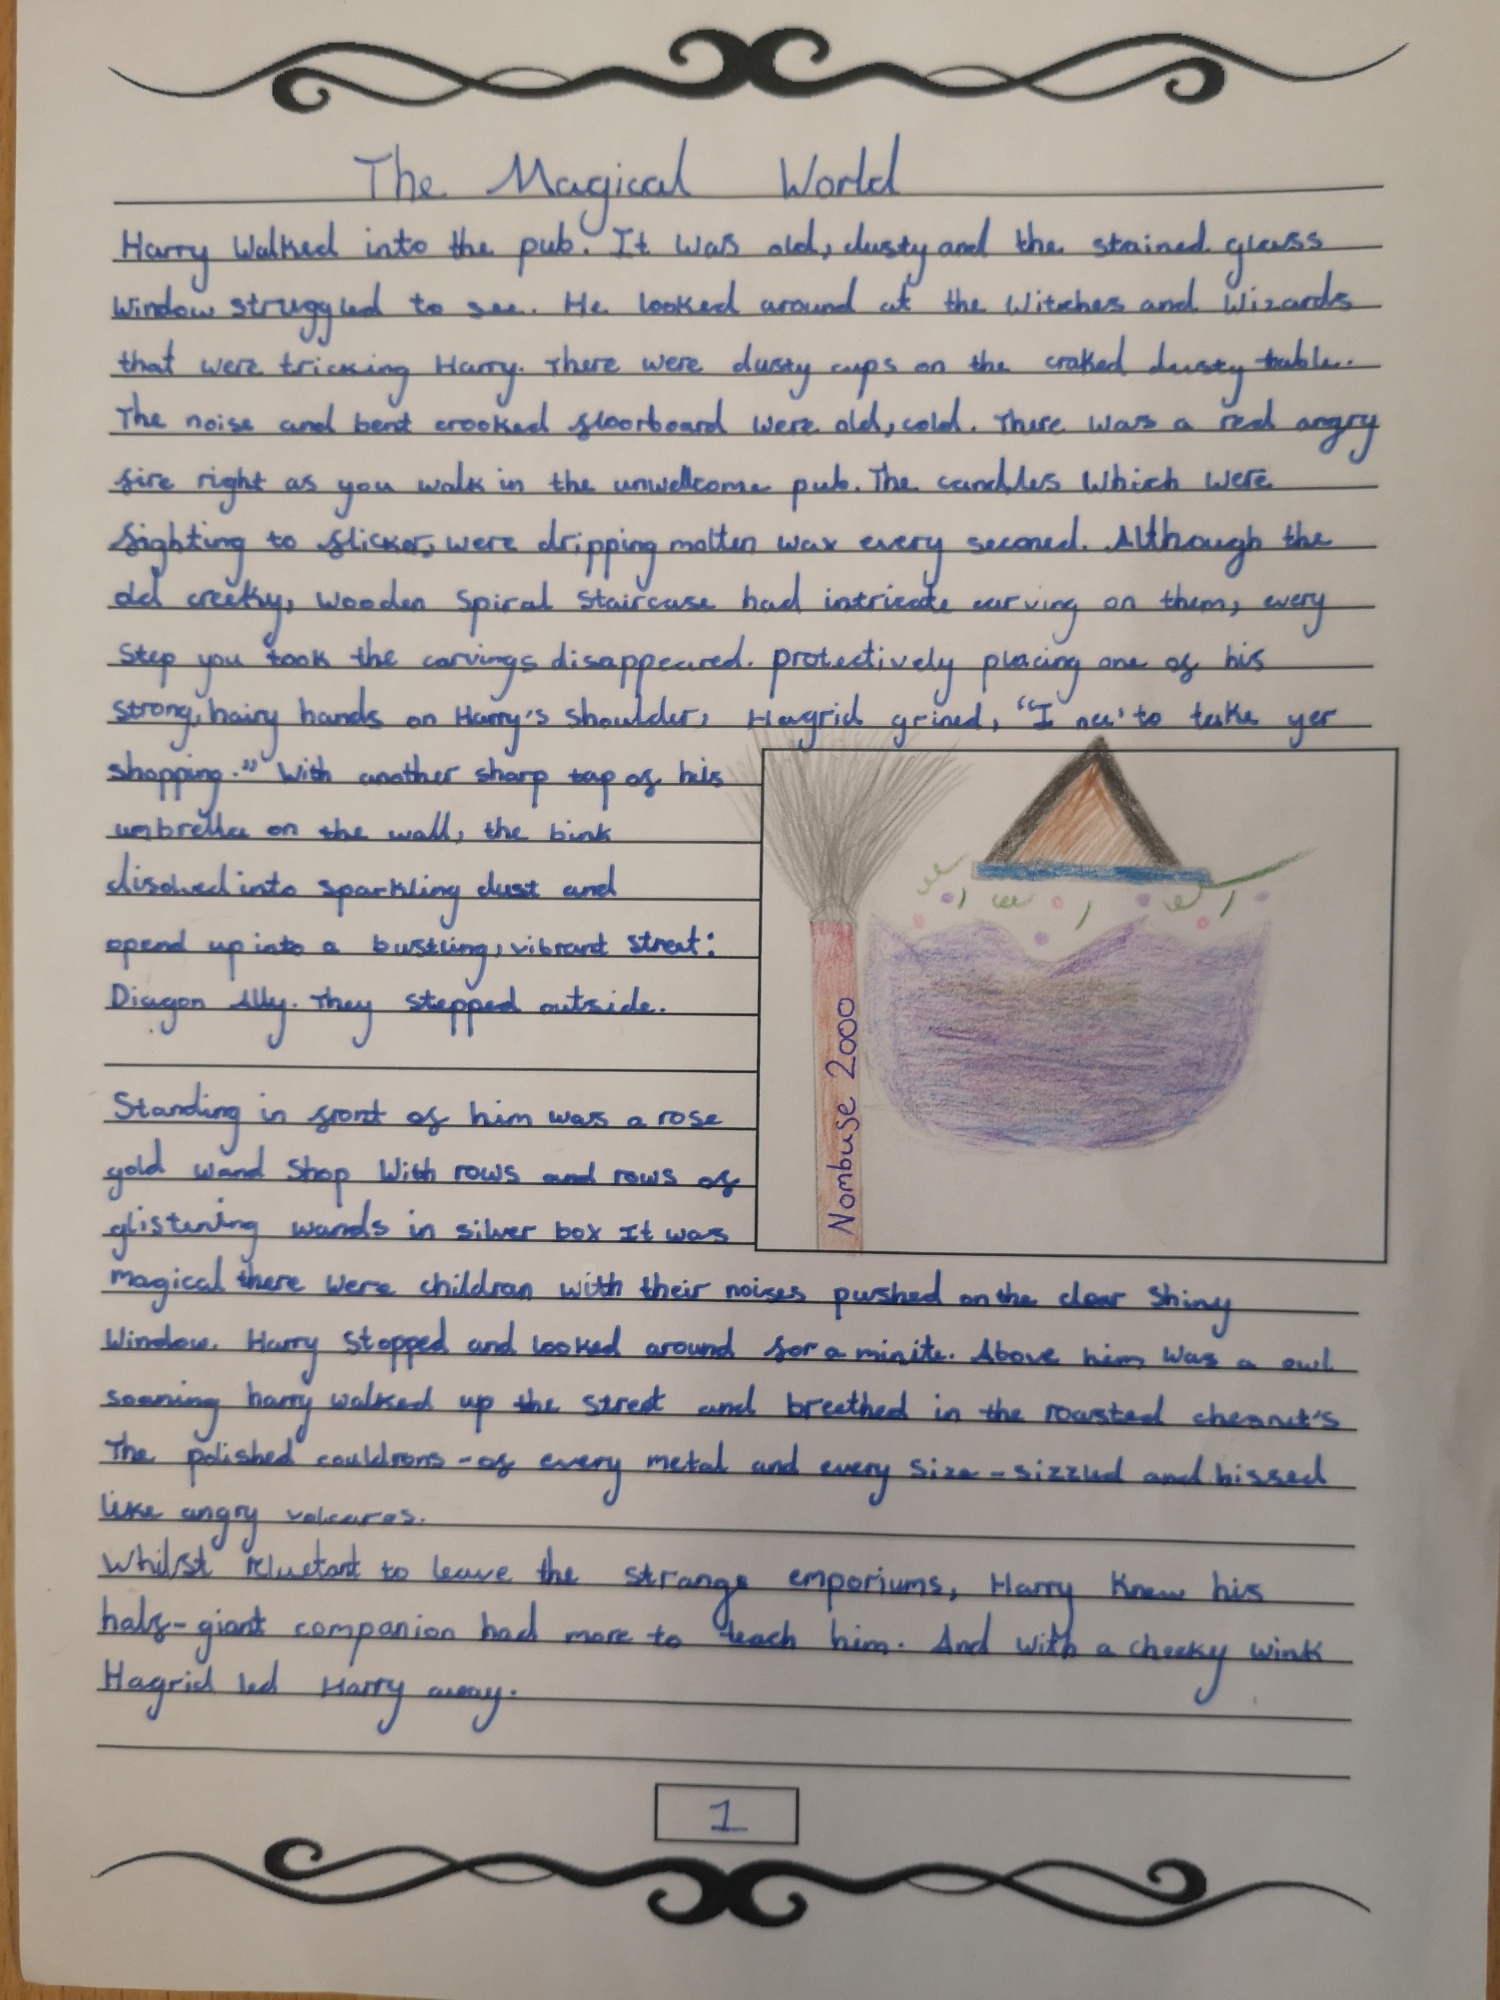 The Magical World
Harry Walked into the pub. It was old, dusty and the stained glass
Window struggled to see. He looked around at the Witches and Wizards
that were tricking Harry. There were dusty cups on the craked dusty table.
The noise and bent crooked floorboard were old, cold. There was a red angry
fire right as you walk in the unwellcome pub. The candles Which were
fighting to flicker, were dripping molten wax every seconed. Although the
old creeky, wooden spiral staircase had intricate carving on them, every
step you took the carvings disappeared. protectively placing one of his
strong, hairy hands on Harry's shoulder, Hagrid grined, "I nee' to take yer
shopping." With another sharp tap of his
umbrella on the wall, the bink
disolved into sparkling dust and
opend up into a bustling, vibrant street:
Diagon Ally. They stepped outside.
Standing in front of him was a rose
gold wand shop With rows and rows of
glistening wands in silver box It was
magical there were children with their noises pushed on the clear shiny
Window. Harry stopped and looked around for a minite. Above him was a owl
soaning harry walked up the street and breethed in the roasted chesnut's
The polished cauldrons - of every metal and every size - sizzled and hissed
like angry volcanos.
Whilst reluctant to leave the strange emporiums, Harry Knew his
half-giant companion had more to teach him. And with a cheeky wink
Hagrid led Harry away.
Nombuse 2000
1